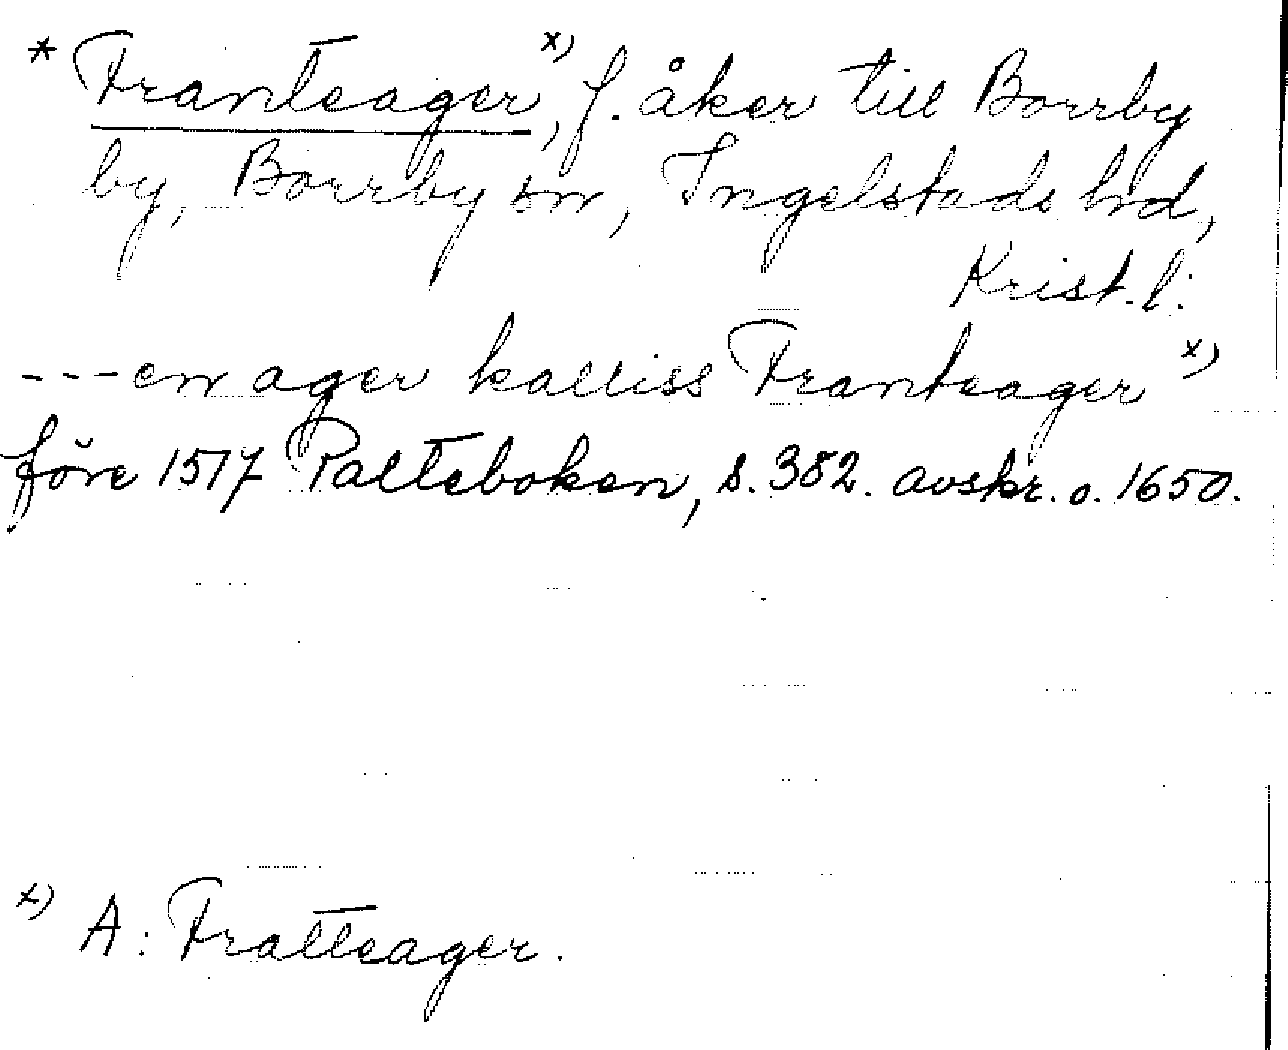 * Franteager x), f. åker till Borrby
by, Borrby sn, Ingelstads hrd,
Krist. l.
---en ager kalliss Franteager x)
före 1517 Palteboken, s. 382. avskr. o. 1650.
x) A: Fratteager.